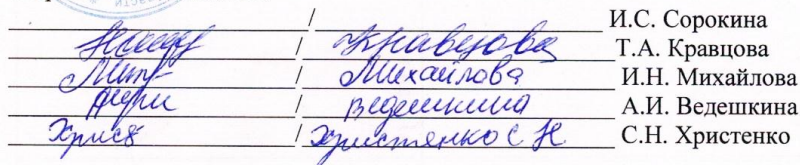 / И.С. Сорокина
/ Кравцова Т.А. Кравцова
/ Михайлова И.Н. Михайлова
/ Ведешкина А.И. Ведешкина
/ Христенко С Н С.Н. Христенко